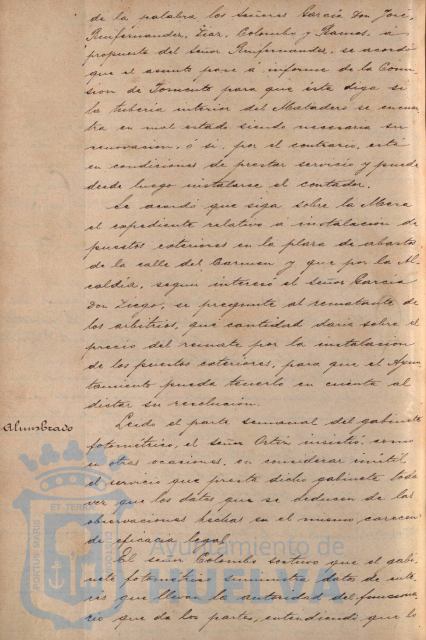 de la palabra los Señores García Don José,
Ruifernandez, Izar, Colombo y Ramos, á
propuesta del Señor Ruifernandez, se acordó
que el asunto pase á informe de la Comi-
sion de Fomento para que ésta diga si
la tubería interior del Matadero se encuen
tra en mal estado siendo necesaria su
renovacion, ó si, por el contrario, está
en condiciones de prestar servicio y puede
desde luego instalarse el contador.
Se acordó que siga sobre la Mesa
el expediente relativo á instalacion de
puestos exteriores en la plaza de abastos
de la calle del Carmen y que por la Al
caldía, segun interesó el señor García
Don Diego, se pregunte al rematante de
los arbitrios, que cantidad daria sobre el
precio del remate por la instalacion
de los puestos exteriores, para que el Ayun
tamiento pueda tenerlo en cuenta al
dictar su resolucion.
Alumbrado
Leido el parte semanal del gabinete
fotométrico, el señor Ortiz insistió como
en otras ocasiones, en considerar inútil
el servicio que presta dicho gabinete toda
vez que los datos que se deducen de las
observaciones hechas en el mismo carecen
de eficacia legal.
El señor Colombo sostuvo que el gabi
nete fotométrico suministra datos de inte
rés que llevan la autoridad del funciona
rio que da los partes, entendiendo que lo
PORTUS MARIS
ET TERRE
CUSTODIA
Ayuntamiento de
HUELVA